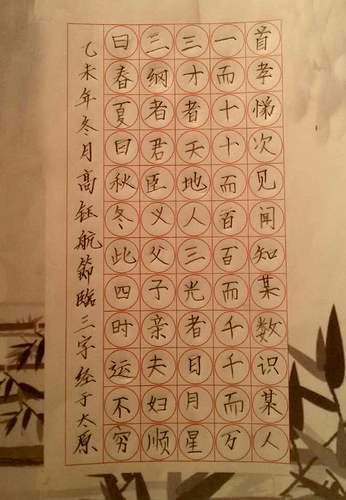 首孝悌次见闻知某数识某人
一而十十而百百而千千而万
三才者天地人三光者日月星
三纲者君臣义父子亲夫妇顺
曰春夏曰秋冬此四时运不穷
乙未年冬月高钰航节临三字经于太原